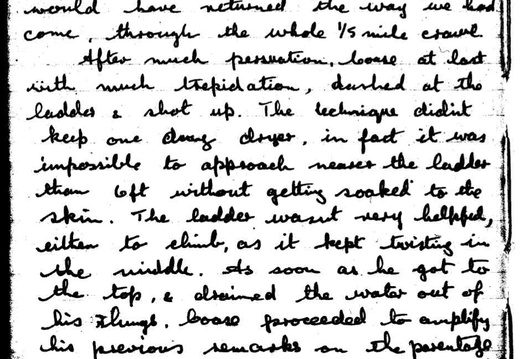 would have returned the way we had
come, through the whole 1/5 mile crawl.
After much persuation, loose at last
with much trepidation, dashed at the
ladder & shot up. The technique didint
keep one doing dryer, in fact it was
impossible to approach nearer the ladder
than 6ft without getting soaked to the
skin. The ladder wasnt very helpful,
either to climb, as it kept twisting in
the middle. As soon as he got to
the top, & drained the water out of
his things, loose proceeded to amplify
his previous remarks on the parentage